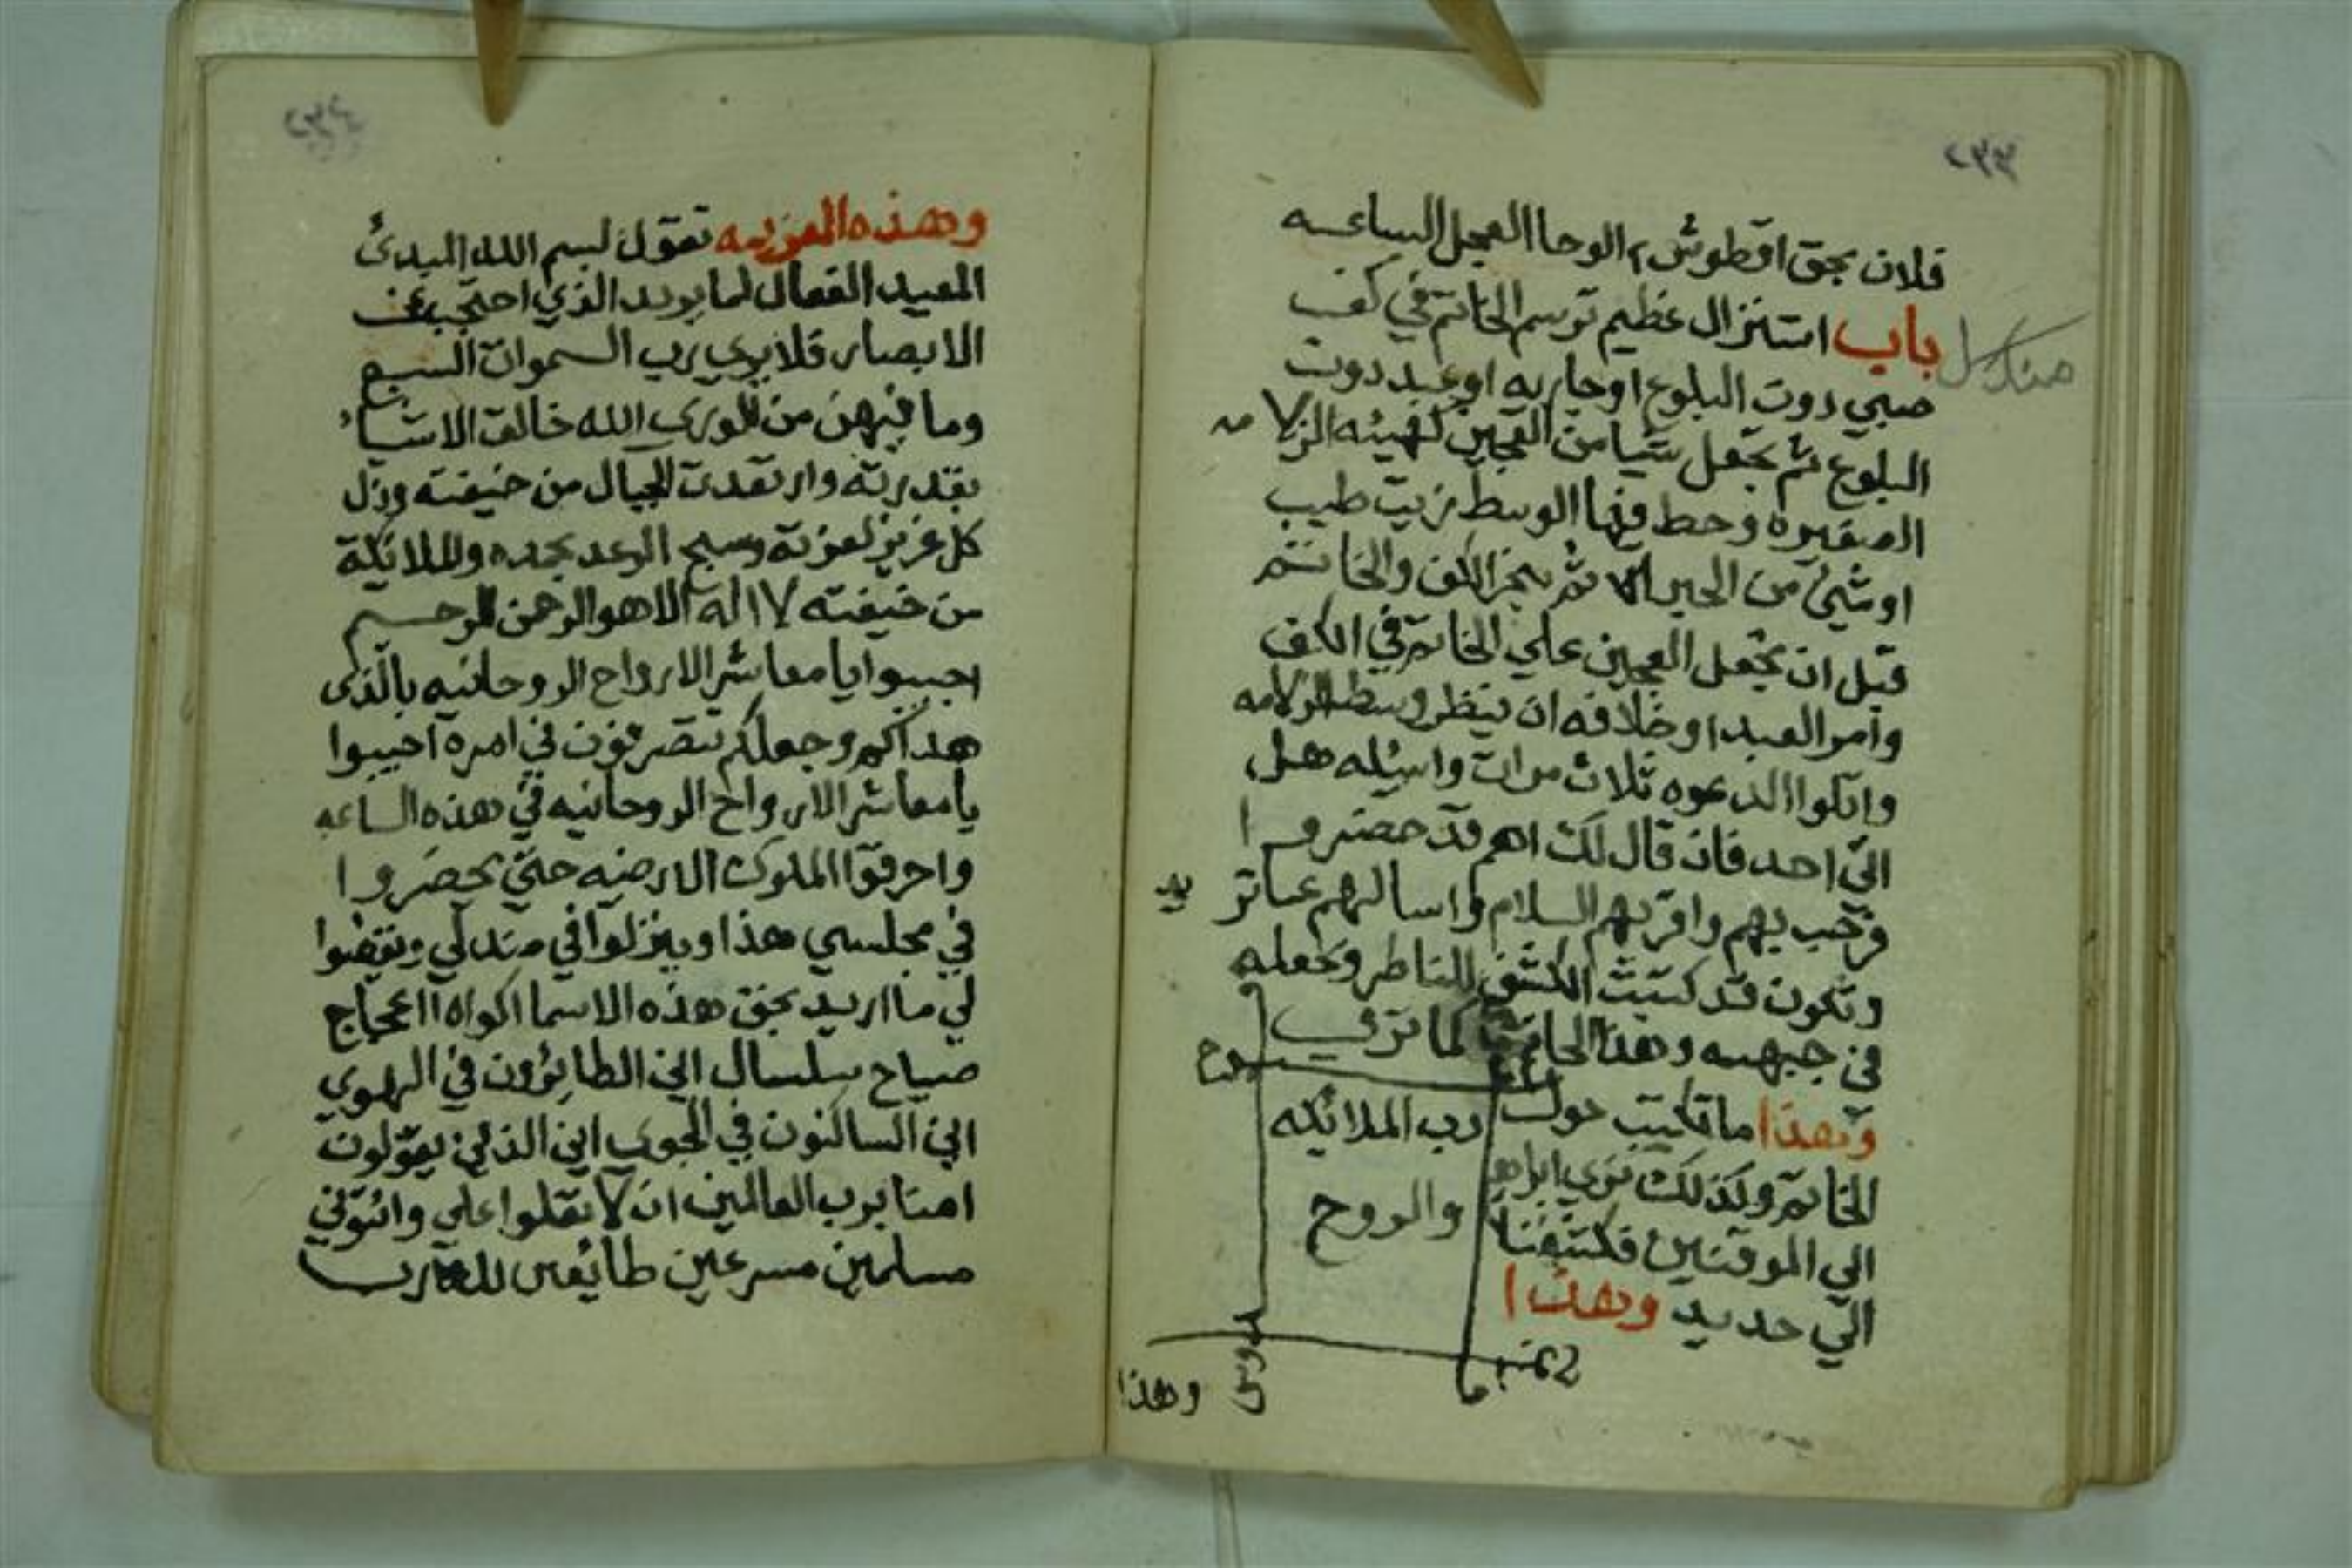 ٢٣٣
فلان بحق اقطوش ٢ الوحا العجل الساعه
مندل
باب استنزال عظيم ترسم الخاتم في كف
صبي دون البلوع او جاريه او عبد دون
البلوع ثم تجعل شيا من العجين كهيئه الزلامه
الصغيره وحط فيها الوسط زيت طيب
او شئ من الحبر ثم بخر الكف والخاتم
قبل ان تجعل العجين علي الخاتم في الكف
وامر العبد او خلافه ان ينظر وسط الزلامه
واتلوا الدعوه ثلاث مرات واسئله هل
اتي احد فان قال لك اهم قد حضروا
فرحب بهم واقربهم السلام واسالهم عما تريد
وتكون قد كتبت الكشف للناظر وتجعله
في جبهته وهذا الخاتم كما تري
وهذا ما تكتب حول
الخاتم وكذلك نري ابراهيم
الي الموقنين فكشفنا
الي حديد وهذا
سبوح
رب الملائكه
والروح
قدوس
وهذا
٢٣٤
وهذه العزيمه تقول بسم الله المبدئ
المعيد الفعال لما يريد الذي احتجب عن
الابصار فلا يري رب السموات السبع
وما فيهن من للوري الله خالق الاشياء
بقدرته وارتعدت الجبال من خيفته وذل
كل عزيز لعزته وسبح الرعد بحمده والملائكة
من خيفته لا اله الا هو الرحمن الرحيم
اجيبوا يا معاشر الارواح الروحانيه بالذي
هداكم وجعلكم تتصرفون في امره اجيبوا
يا معاشر الارواح الروحانيه في هذه الساعه
واحرقوا الملوك الارضيه حتي يحضروا
في مجلسي هذا وينزلوا في مندلي ويقضوا
لي ما اريد بحق هذه الاسما اكواه اعجاج
صياح سلسال اين الطائرون في الهوي
اين الساكنون في الجوي اين الذين يقولون
امنا برب العالمين ان لا تعلوا علي وائتوني
مسلمين مسرعين طائعين لله رب